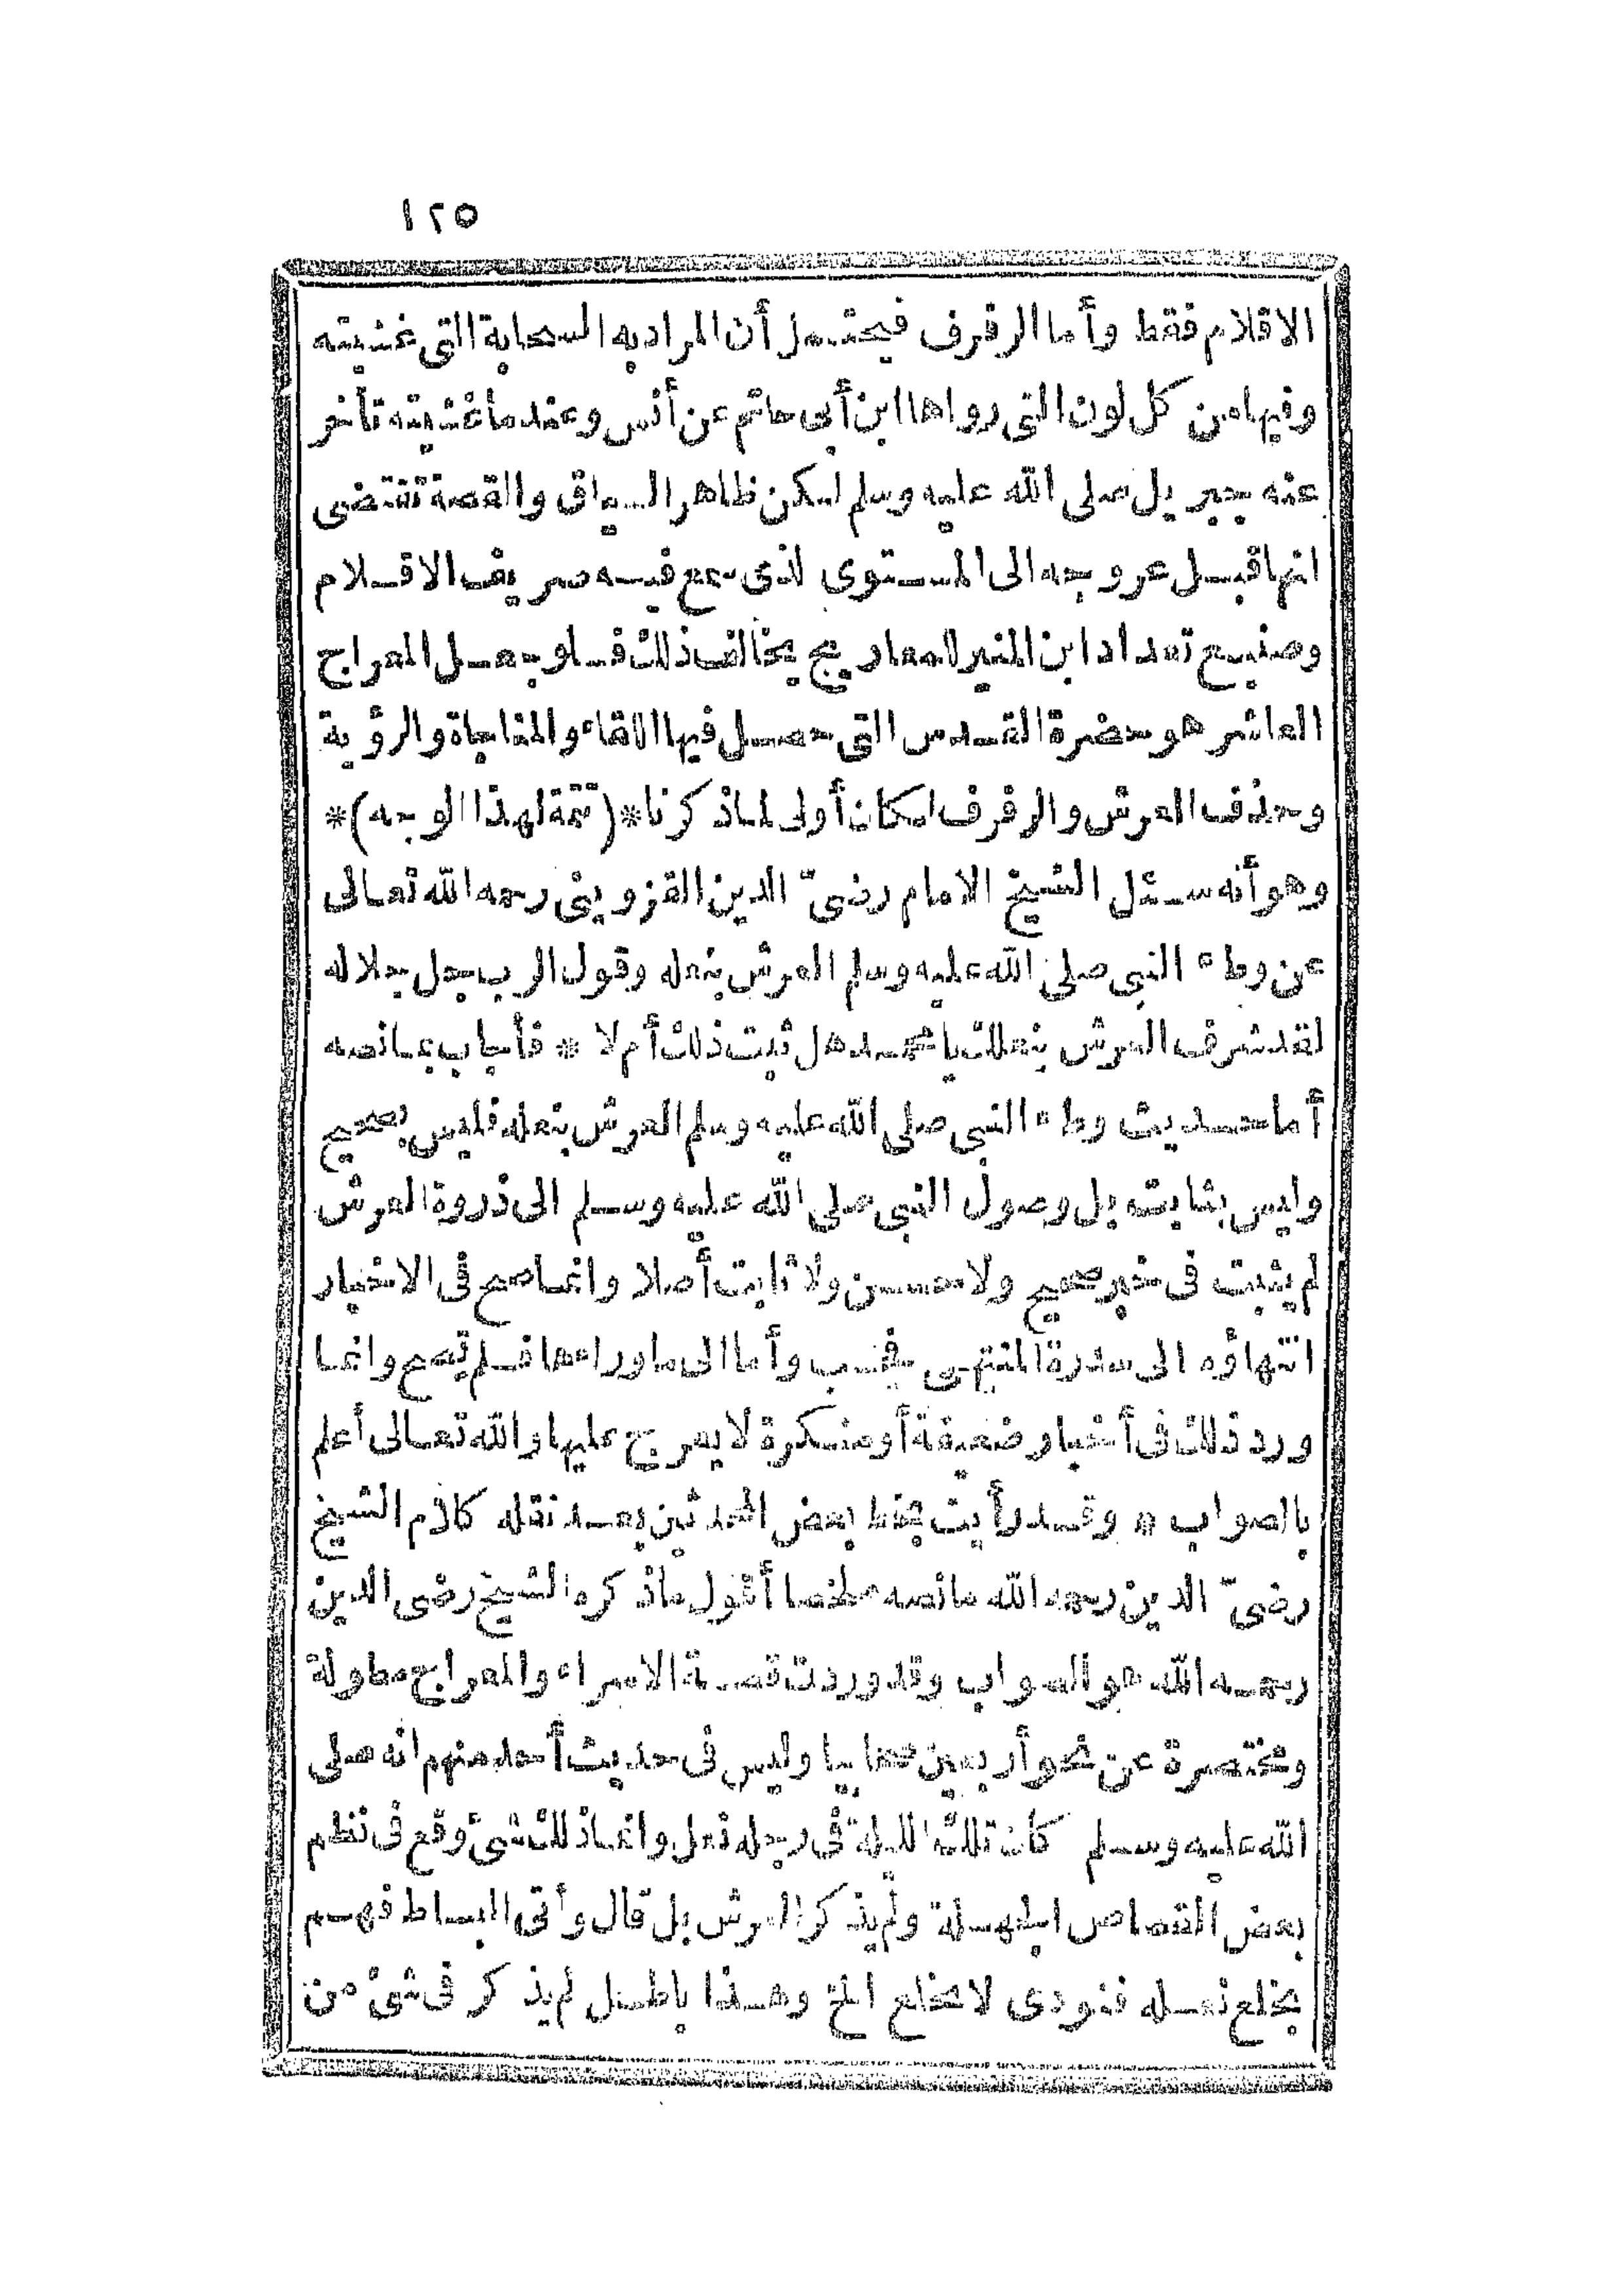 ١٢٥
الاقلام فقط وأما الرفرف فيحتمل أن المراد به السحابة التى غشيته
وفيها من كل لون التى رواها ابن أبى حاتم عن أنس وعند ما غشيته تأخر
عنه جبريل صلى الله عليه وسلم لكن ظاهر السياق والقصة تقتضى
انها قبل عروجه الى المستوى لذى سمع فيه صريف الاقلام
وصنيع تعداد ابن المنير للمعاريج يخالف ذلك فلو جعل المعراج
العاشر هو حضرة القدس التى حصل فيها اللقاء والمناجاة والرؤية
وحذف العرش والرفرف لكان أولى لما ذكرنا *(تتمة لهذا الوجه)*
وهو أنه سئل الشيخ الامام رضىّ الدين القزوينى رحمه الله تعالى
عن وطء النبى صلى الله عليه وسلم العرش بنعله وقول الرب جل جلاله
لقد شرف العرش بنعلك يا محمد هل ثبت ذلك أم لا * فأجاب بما نصه
أما حديث وطء النبى صلى الله عليه وسلم العرش بنعله فليس بصحيح
وليس بثابت بل وصول النبى صلى الله عليه وسلم الى ذروة العرش
لم يثبت فى خبر صحيح ولا حسن ولا ثابت أصلا وانما صح فى الاخبار
انتهاؤه الى سدرة المنتهى فحسب وأما الى ما وراءها فلم يصح وانما
ورد ذلك فى أخبار ضعيفة أو منكرة لا يعرج عليها والله تعالى أعلم
بالصواب * وقد رأيت بخط بعض المحدثين بعد نقله كلام الشيخ
رضىّ الدين رحمه الله ما نصه ملخصا أقول ما ذكره الشيخ رضى الدين
رحمه الله هو الصواب وقد وردت قصة الاسراء والمعراج مطولة
ومختصرة عن نحو أربعين صحابيا وليس فى حديث أحد منهم انه صلى
الله عليه وسلم كان تلك الليلة فى رجله نعل وانما ذلك شئ وقع فى نظم
بعض القصاص الجهلة ولم يذكر العرش بل قال وأتى البساط فهم
بخلع نعله فنودى لا تخلع الخ وهذا باطل لم يذكر فى شئ من